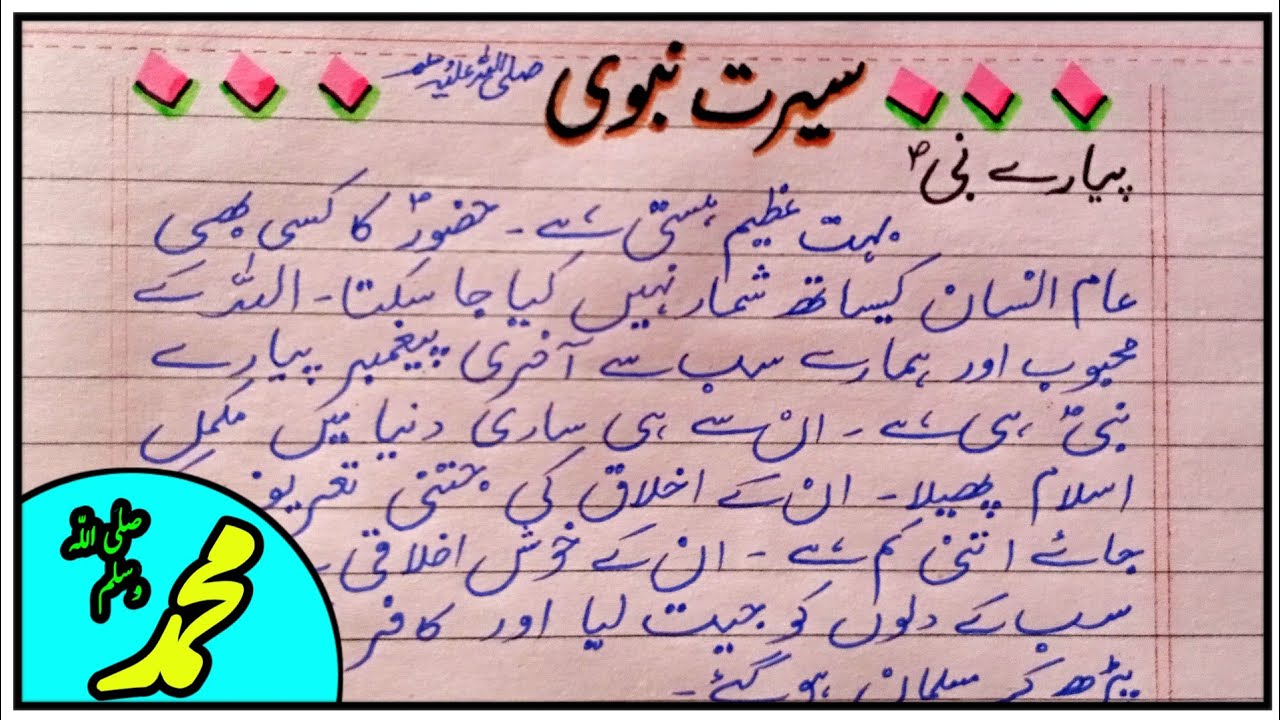 سیرت نبوی صلی اللہ علیہ وسلم
پیارے نبیؐ
بہت عظیم ہستی ہے۔ حضورؐ کا کسی بھی
عام انسان کیساتھ شمار نہیں کیا جا سکتا۔ اللہ کے
محبوب اور ہمارے سب سے آخری پیغمبر پیارے
نبیؐ ہی ہے۔ ان سے ہی ساری دنیا میں مکمل
اسلام پھیلا۔ ان کے اخلاق کی جتنی تعریف
جائے اتنی کم ہے۔ ان کے خوش اخلاقی
سب کے دلوں کو جیت لیا اور کافر
پڑھ کر مسلمان ہو گئے۔
صلی اللہ
وسلم
محمد